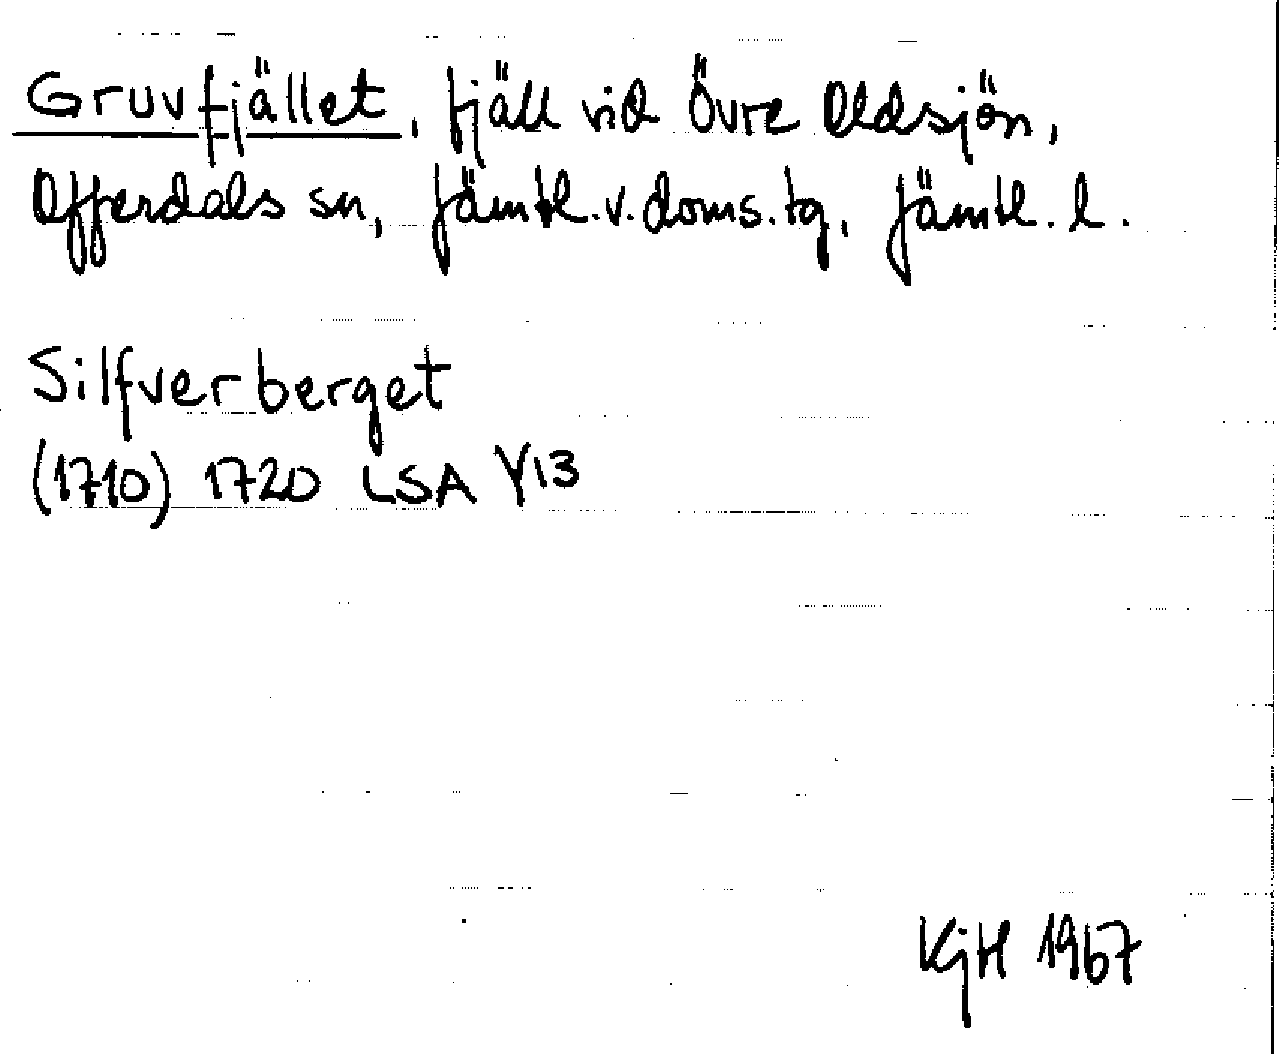 Gruvfjället, fjäll vid Övre Oldsjön,
Offerdals sn, Jämtl.v.doms.tg, Jämtl. l.
Silfverberget
(1710) 1720 LSA Y13
KjH 1967